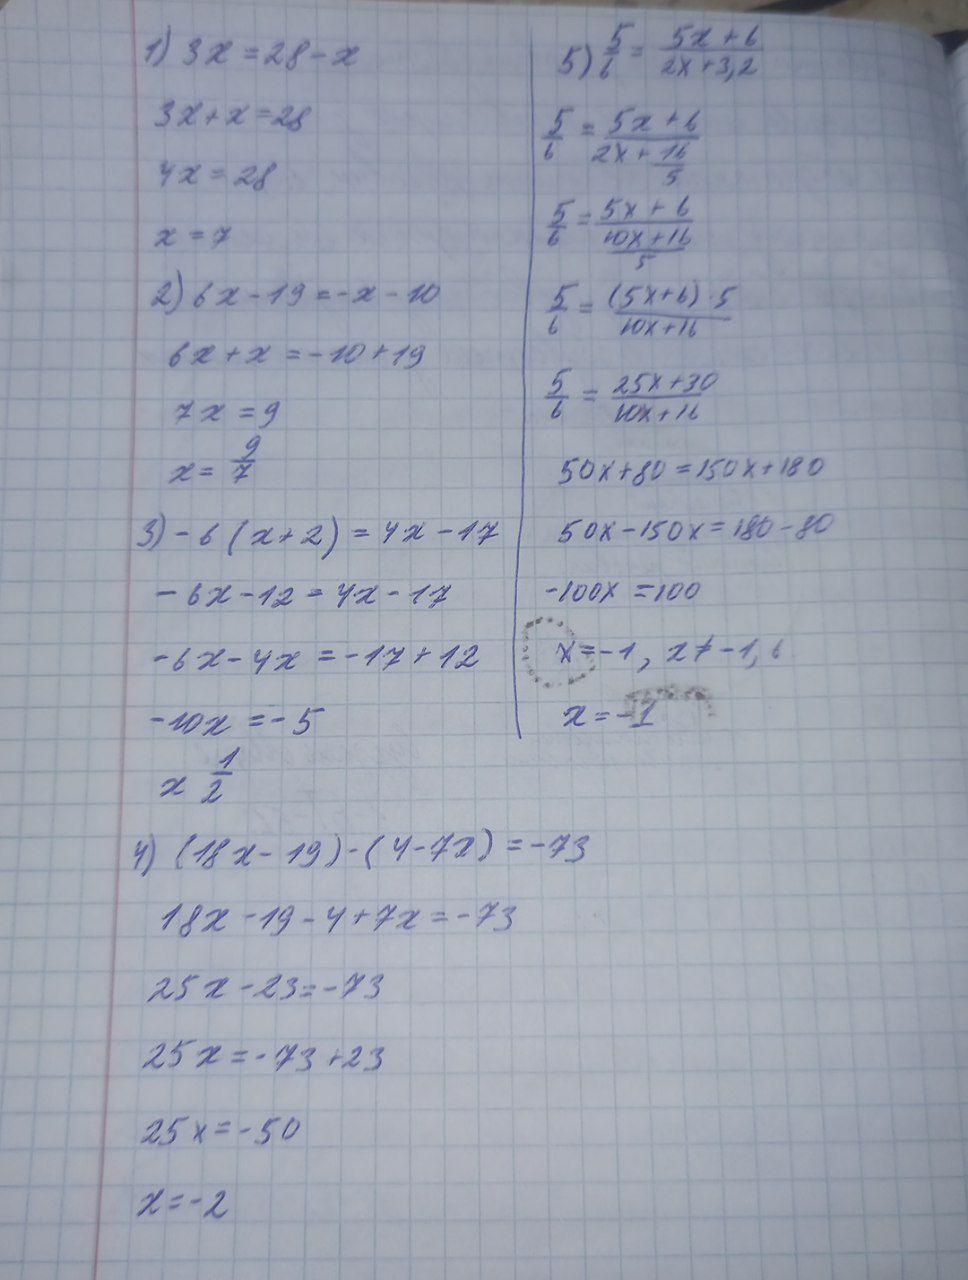 1) 3x = 28 - x
3x + x = 28
4x = 28
x = 7
2) 6x - 19 = -x - 10
6x + x = -10 + 19
7x = 9
x = 9/7
3) -6(x+2) = 4x - 17
-6x - 12 = 4x - 17
-6x - 4x = -17 + 12
-10x = -5
x 1/2
4) (18x - 19) - (4 - 7x) = -73
18x - 19 - 4 + 7x = -73
25x - 23 = -73
25x = -73 + 23
25x = -50
x = -2
5) 5/6 = (5x + 6)/(2x + 3,2)
5/6 = (5x + 6)/(2x + 16/5)
5/6 = (5x + 6)/((10x + 16)/5)
5/6 = ((5x + 6) · 5)/(10x + 16)
5/6 = (25x + 30)/(10x + 16)
50x + 80 = 150x + 180
50x - 150x = 180 - 80
-100x = 100
x = -1, x ≠ -1,6
x = -1